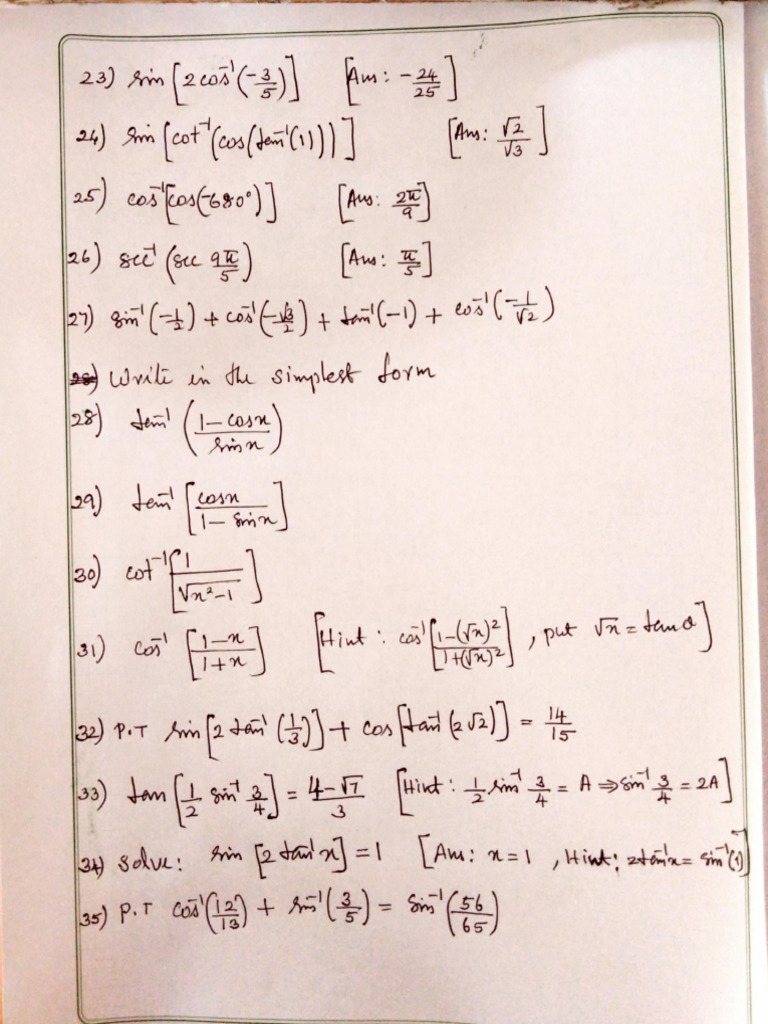 23) sin [2 cos⁻¹(-3/5)] [Ans: -24/25]
24) sin [cot⁻¹(cos(tan⁻¹(1)))] [Ans: √2/√3]
25) cos⁻¹[cos(-680°)] [Ans: 2π/9]
26) sec⁻¹ (sec 9π/5) [Ans: π/5]
27) sin⁻¹(-1/2) + cos⁻¹(-√3/2) + tan⁻¹(-1) + cos⁻¹(-1/√2)
28) Write in the simplest form
28) tan⁻¹ ((1-cosx)/sinx)
29) tan⁻¹ [cosx/(1-sinx)]
30) cot⁻¹[1/√(x²-1)]
31) cos⁻¹ [(1-x)/(1+x)] [Hint: cos⁻¹[(1-(√x)²)/(1+(√x)²)], put √x = tanθ]
32) P.T sin[2 tan⁻¹(1/3)] + cos[tan⁻¹(2√2)] = 14/15
33) tan [1/2 sin⁻¹ 3/4] = (4-√7)/3 [Hint: 1/2 sin⁻¹ 3/4 = A ⇒ sin⁻¹ 3/4 = 2A]
34) Solve: sin [2 tan⁻¹x] = 1 [Ans: x=1, Hint: 2tan⁻¹x = sin⁻¹(1)]
35) P.T cos⁻¹(12/13) + sin⁻¹(3/5) = sin⁻¹(56/65)